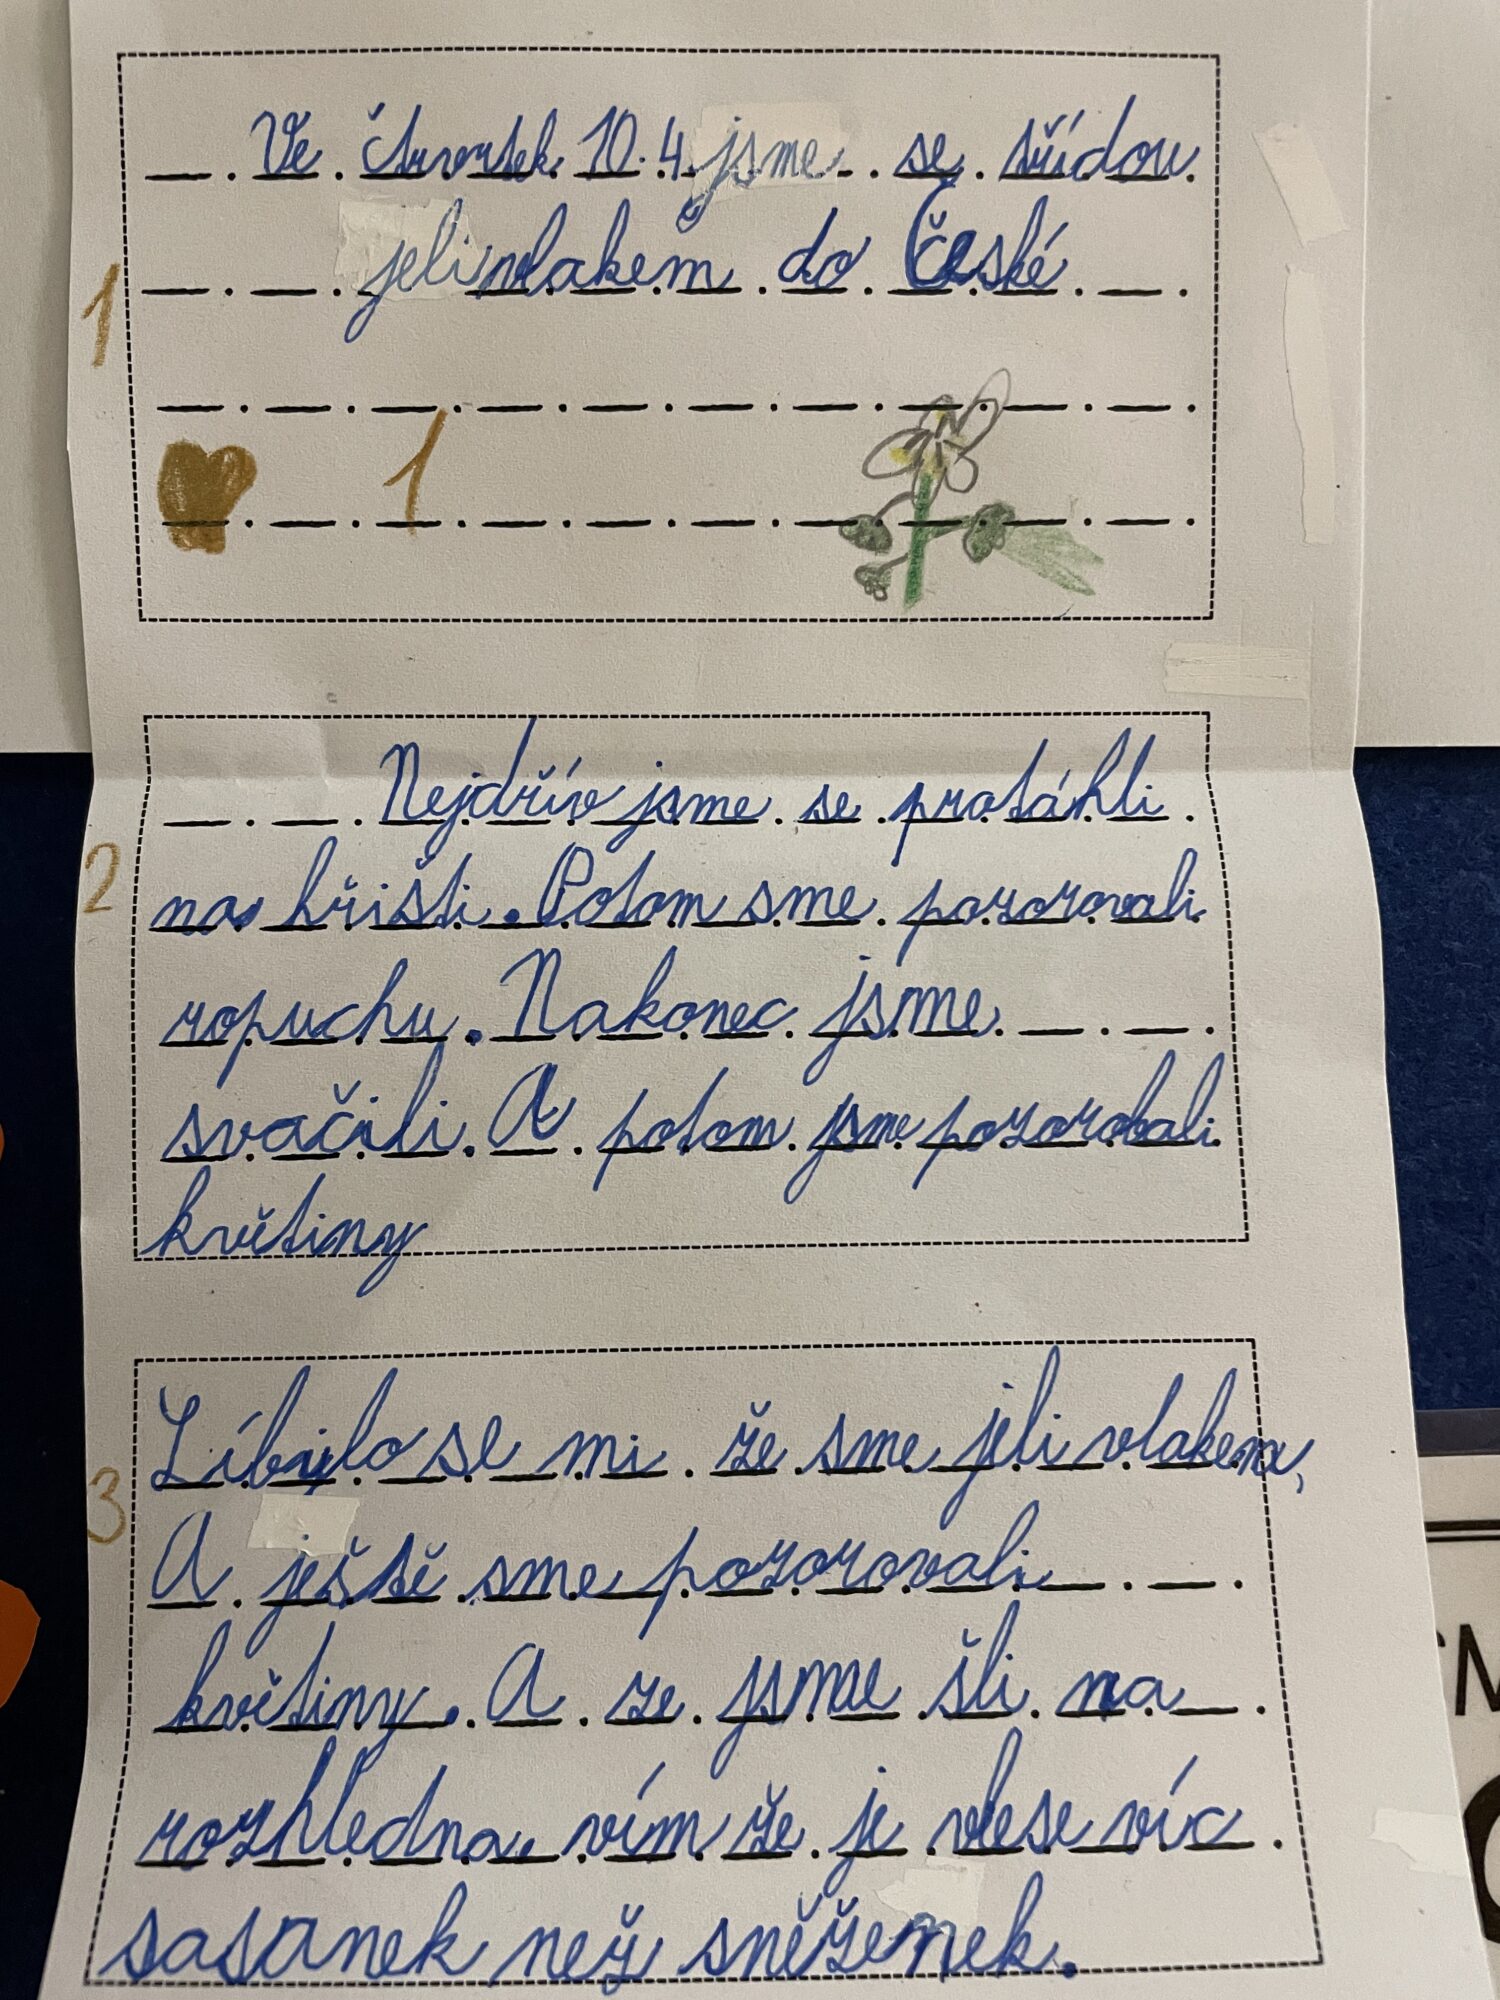 Ve čtvrtek 10.4. jsme se třídou
1 jeli vlakem do České
1
Nejdřív jsme se protáhli
2 na hřišti. Potom sme pozorovali
ropuchu. Nakonec jsme
svačili. A potom jsme pozorobali
květiny
Líbilo se mi že sme jeli vlakem,
3 A ještě sme pozorovali
květiny. A ze jsme šli na
rozhledna. vím že je vlese víc
sasanek než sněženek.